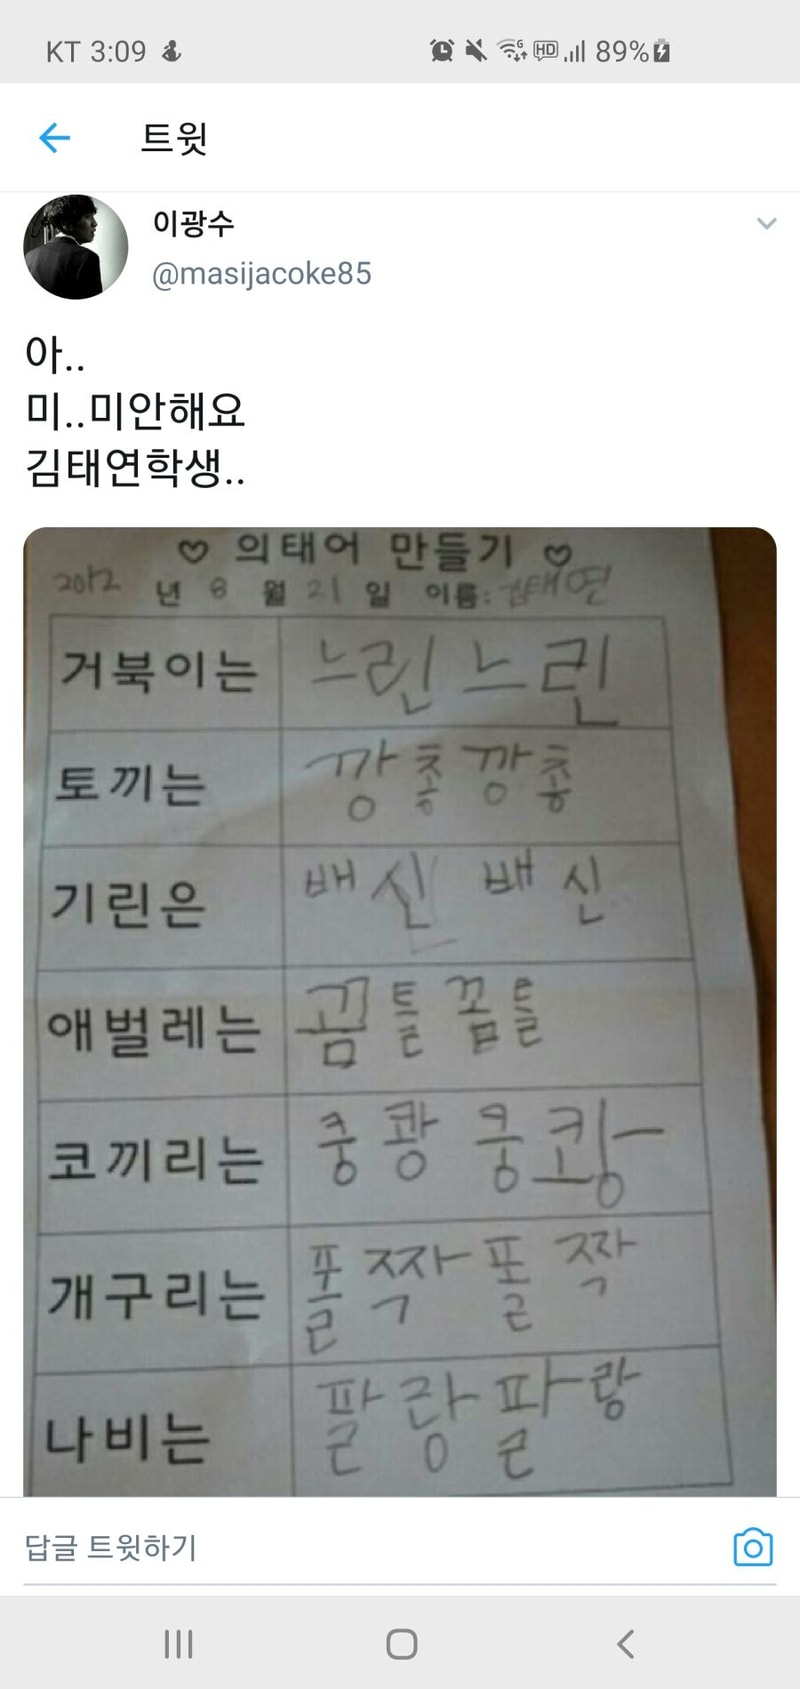 KT 3:09
HD 89%
트윗
이광수
@masijacoke85
아..
미..미안해요
김태연학생..
♡ 의태어 만들기 ♡
2012 년 8 월 21 일 이름: 김태연
거북이는 느린느린
토끼는 깡총깡총
기린은 배신 배신
애벌레는 꿈틀꿈틀
코끼리는 쿵쾅쿵쾅
개구리는 폴짝폴짝
나비는 팔랑팔랑
답글 트윗하기